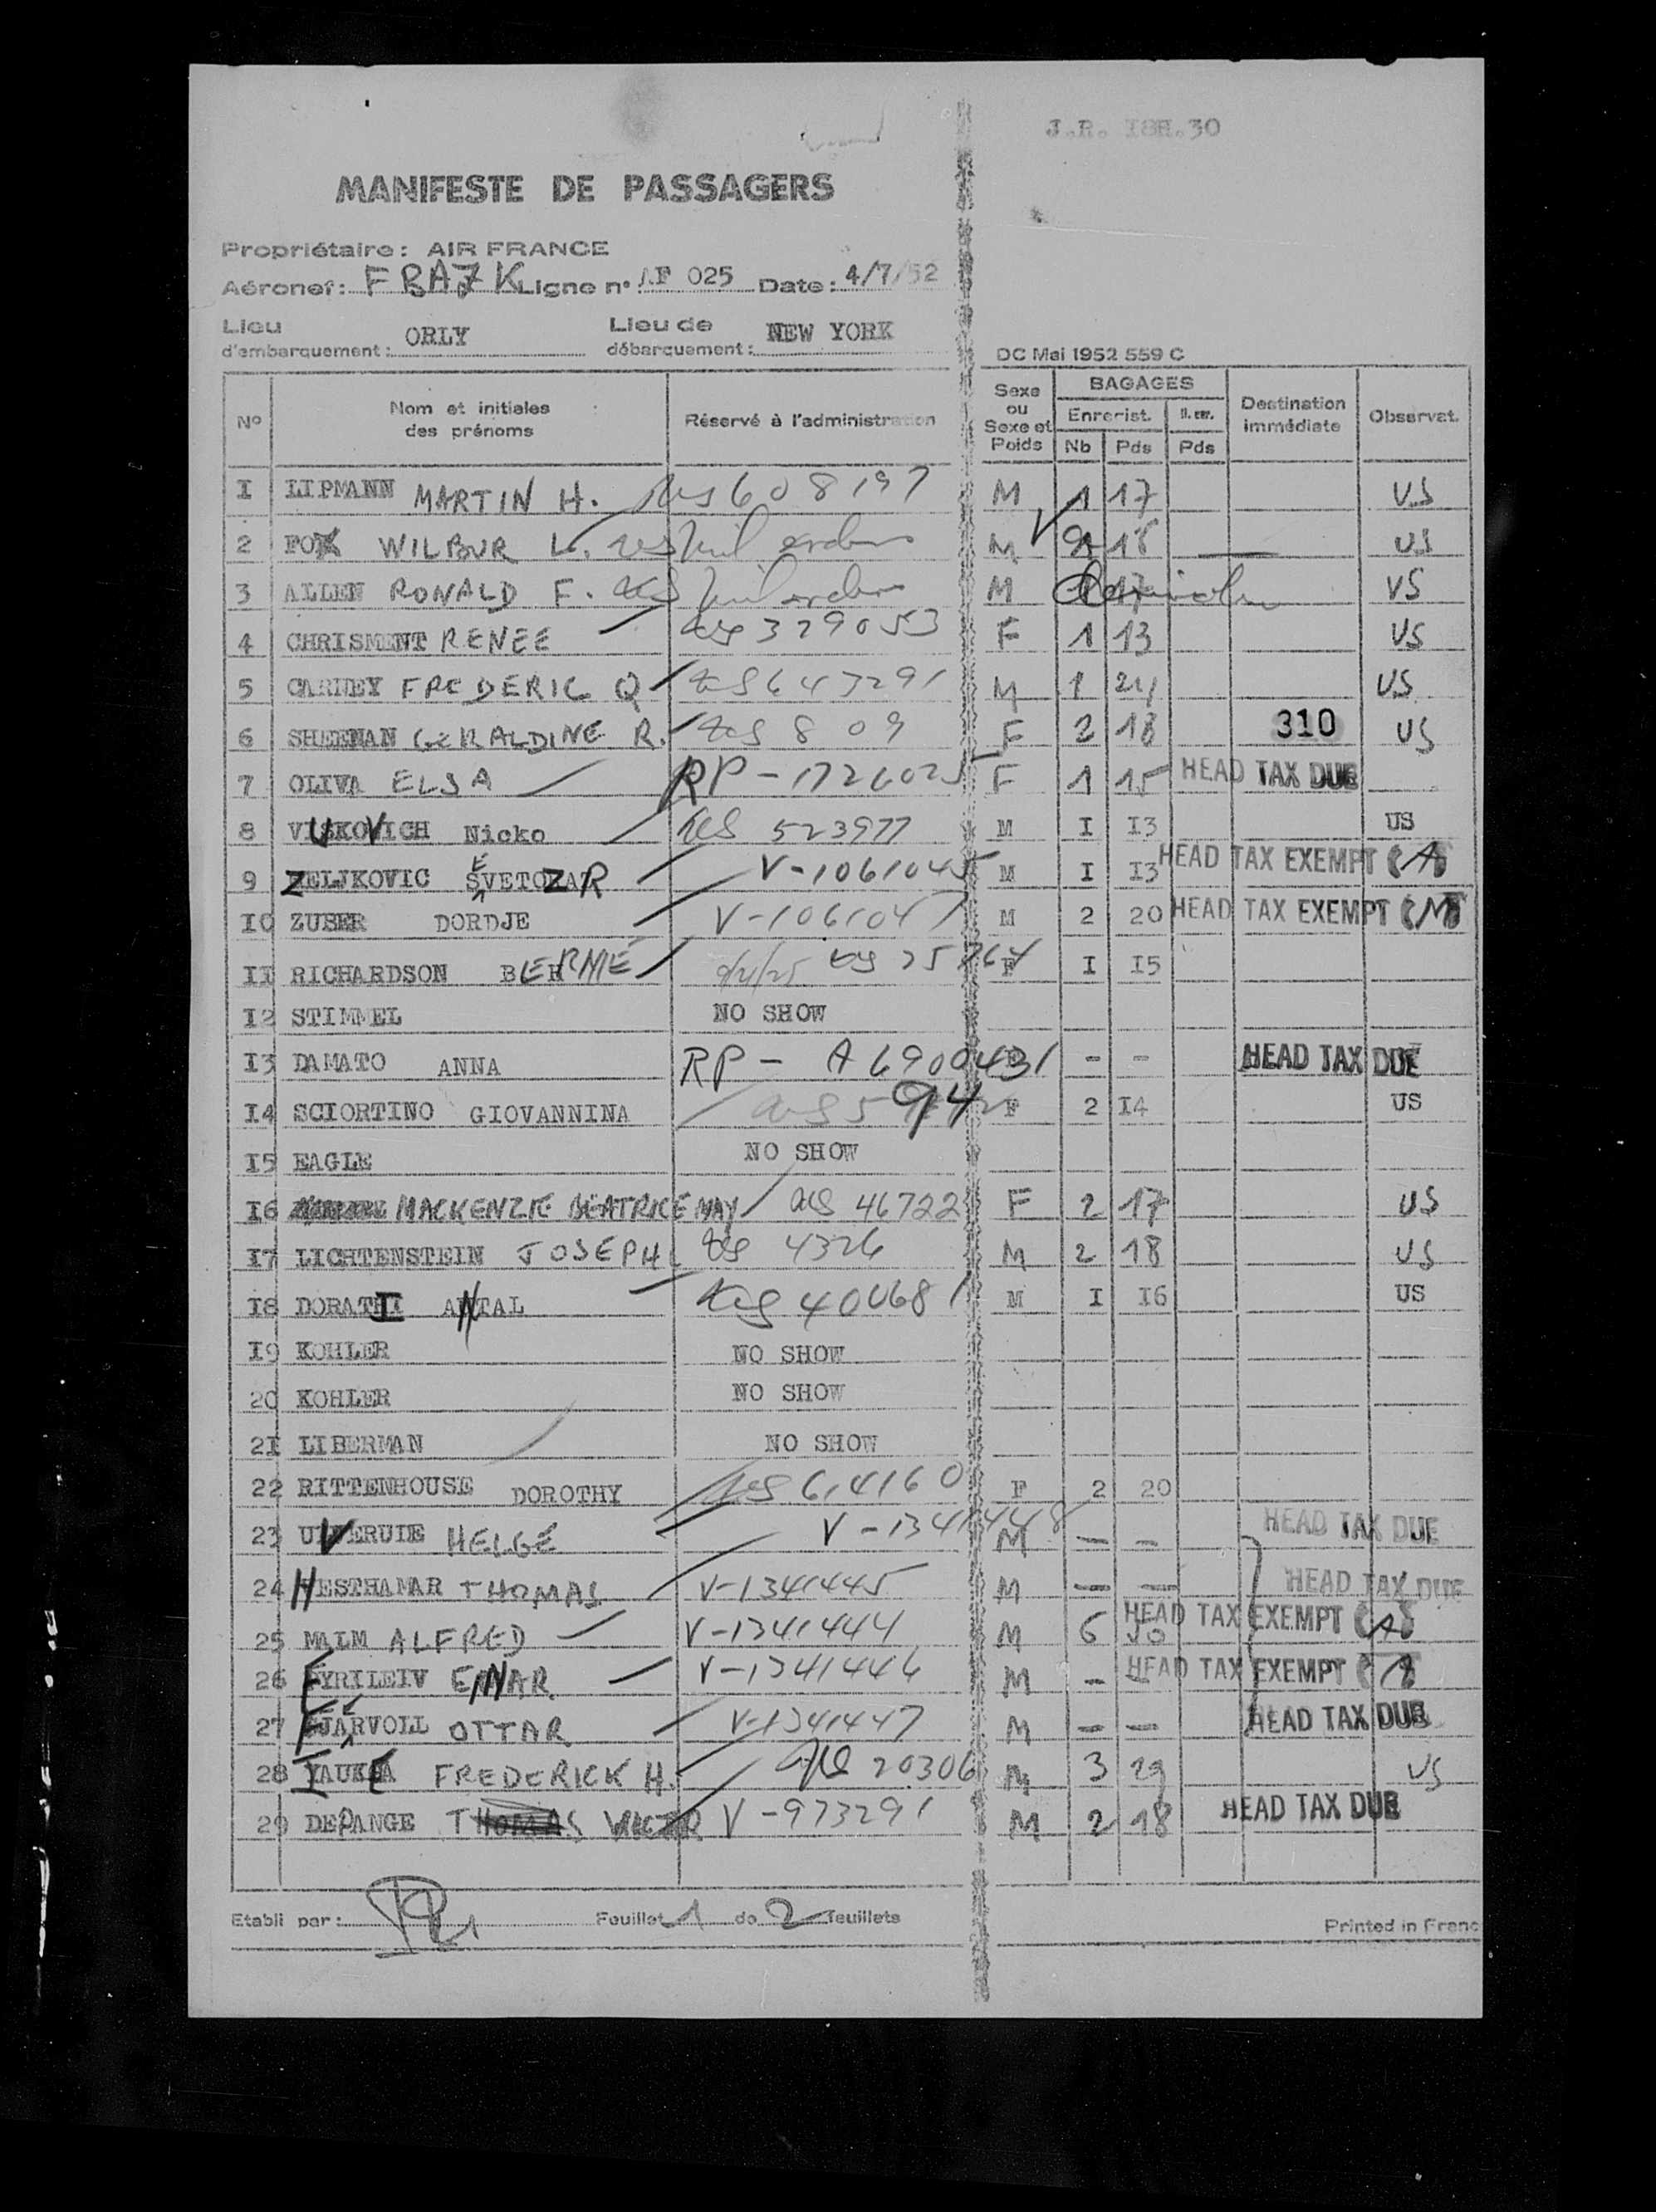 J.R. I8H.30
MANIFESTE DE PASSAGERS
Propriétaire: AIR FRANCE
Aéronef: FBAZK Ligne n° AF 025 Date: 4/7/52
Lieu d'embarquement: ORLY Lieu de débarquement: NEW YORK
DC Mai 1952 559 C
N° Nom et initiales des prénoms Réservé à l'administration Sexe ou Sexe et Poids BAGAGES Enregist. Nb Pds Pds Destination immédiate Observat.
I LIPMANN MARTIN H. M 1 17 US
2 FOX WILBUR L. M 18 US
3 ALLEN RONALD F. M 17 US
4 CHRISMENT RENEE 329053 F 1 13 US
5 CARNEY FREDERIC Q 643291 M 1 24 US
6 SHEEHAN GERALDINE R. 809 F 2 18 310 US
7 OLIVA ELSA RP-1726025 F 1 15 HEAD TAX DUE
8 VUSKOVICH Nicko 523977 M I I3 US
9 ZELJKOVIC SVETOZAR V-1061045 M I I3 HEAD TAX EXEMPT
IO ZUBER DORDJE V-1061047 M 2 20 HEAD TAX EXEMPT
II RICHARDSON BERNIE F I I5
I2 STIMMEL NO SHOW
I3 DAMATO ANNA RP - A6900431 - - HEAD TAX DUE
I4 SCIORTINO GIOVANNINA F 2 I4 US
I5 EAGLE NO SHOW
I6 MACKENZIE BEATRICE MAY 46722 F 2 17 US
I7 LICHTENSTEIN JOSEPH 4326 M 2 18 US
I8 DORATI ANTAL M I I6 US
I9 KOHLER NO SHOW
20 KOHLER NO SHOW
2I LIBERMAN NO SHOW
22 RITTENHOUSE DOROTHY 614160 F 2 20
23 HELGE V-1341448 M - - HEAD TAX DUE
24 HESTHAMAR THOMAS V-1341445 M - - HEAD TAX DUE
25 MALM ALFRED V-1341444 M 6 HEAD TAX EXEMPT
26 EINAR V-1341446 M - - HEAD TAX EXEMPT
27 OTTAR V-1341447 M - - HEAD TAX DUE
28 FREDERICK H. 20306 M 3 29 US
29 DEPANGE V-973291 M 2 18 HEAD TAX DUE
Etabli par: Feuillet 1 de 2 feuillets
Printed in Franc